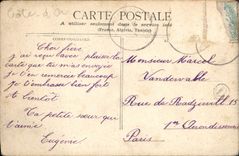 Côte d'Or
CARTE POSTALE
(France, Algérie, Tunisie)
Cher frère
j'ai reçu avec plaisir la
carte que tu m'as envoyée
je t'en remercie beaucoup
J'embrasse bien fort
A bientôt
Ta petite sœur qui
t'aime
Eugénie
Monsieur Marcel
Vanderwalle
Rue de 15
1er Arrondissement
Paris